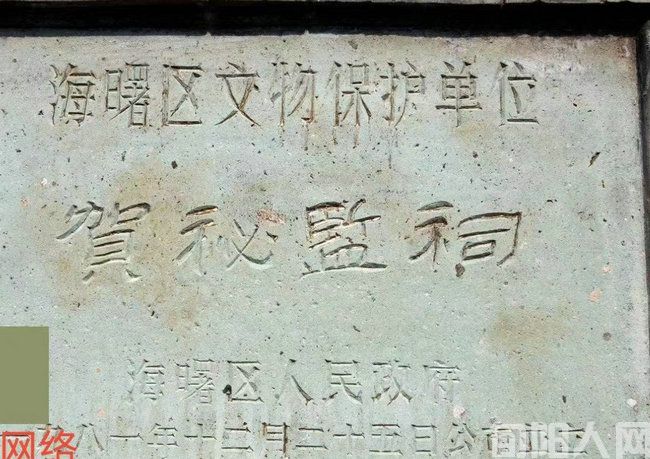 海曙区文物保护单位
賀秘監祠
海曙区人民政府
八一年十二月二十五日公布
网络